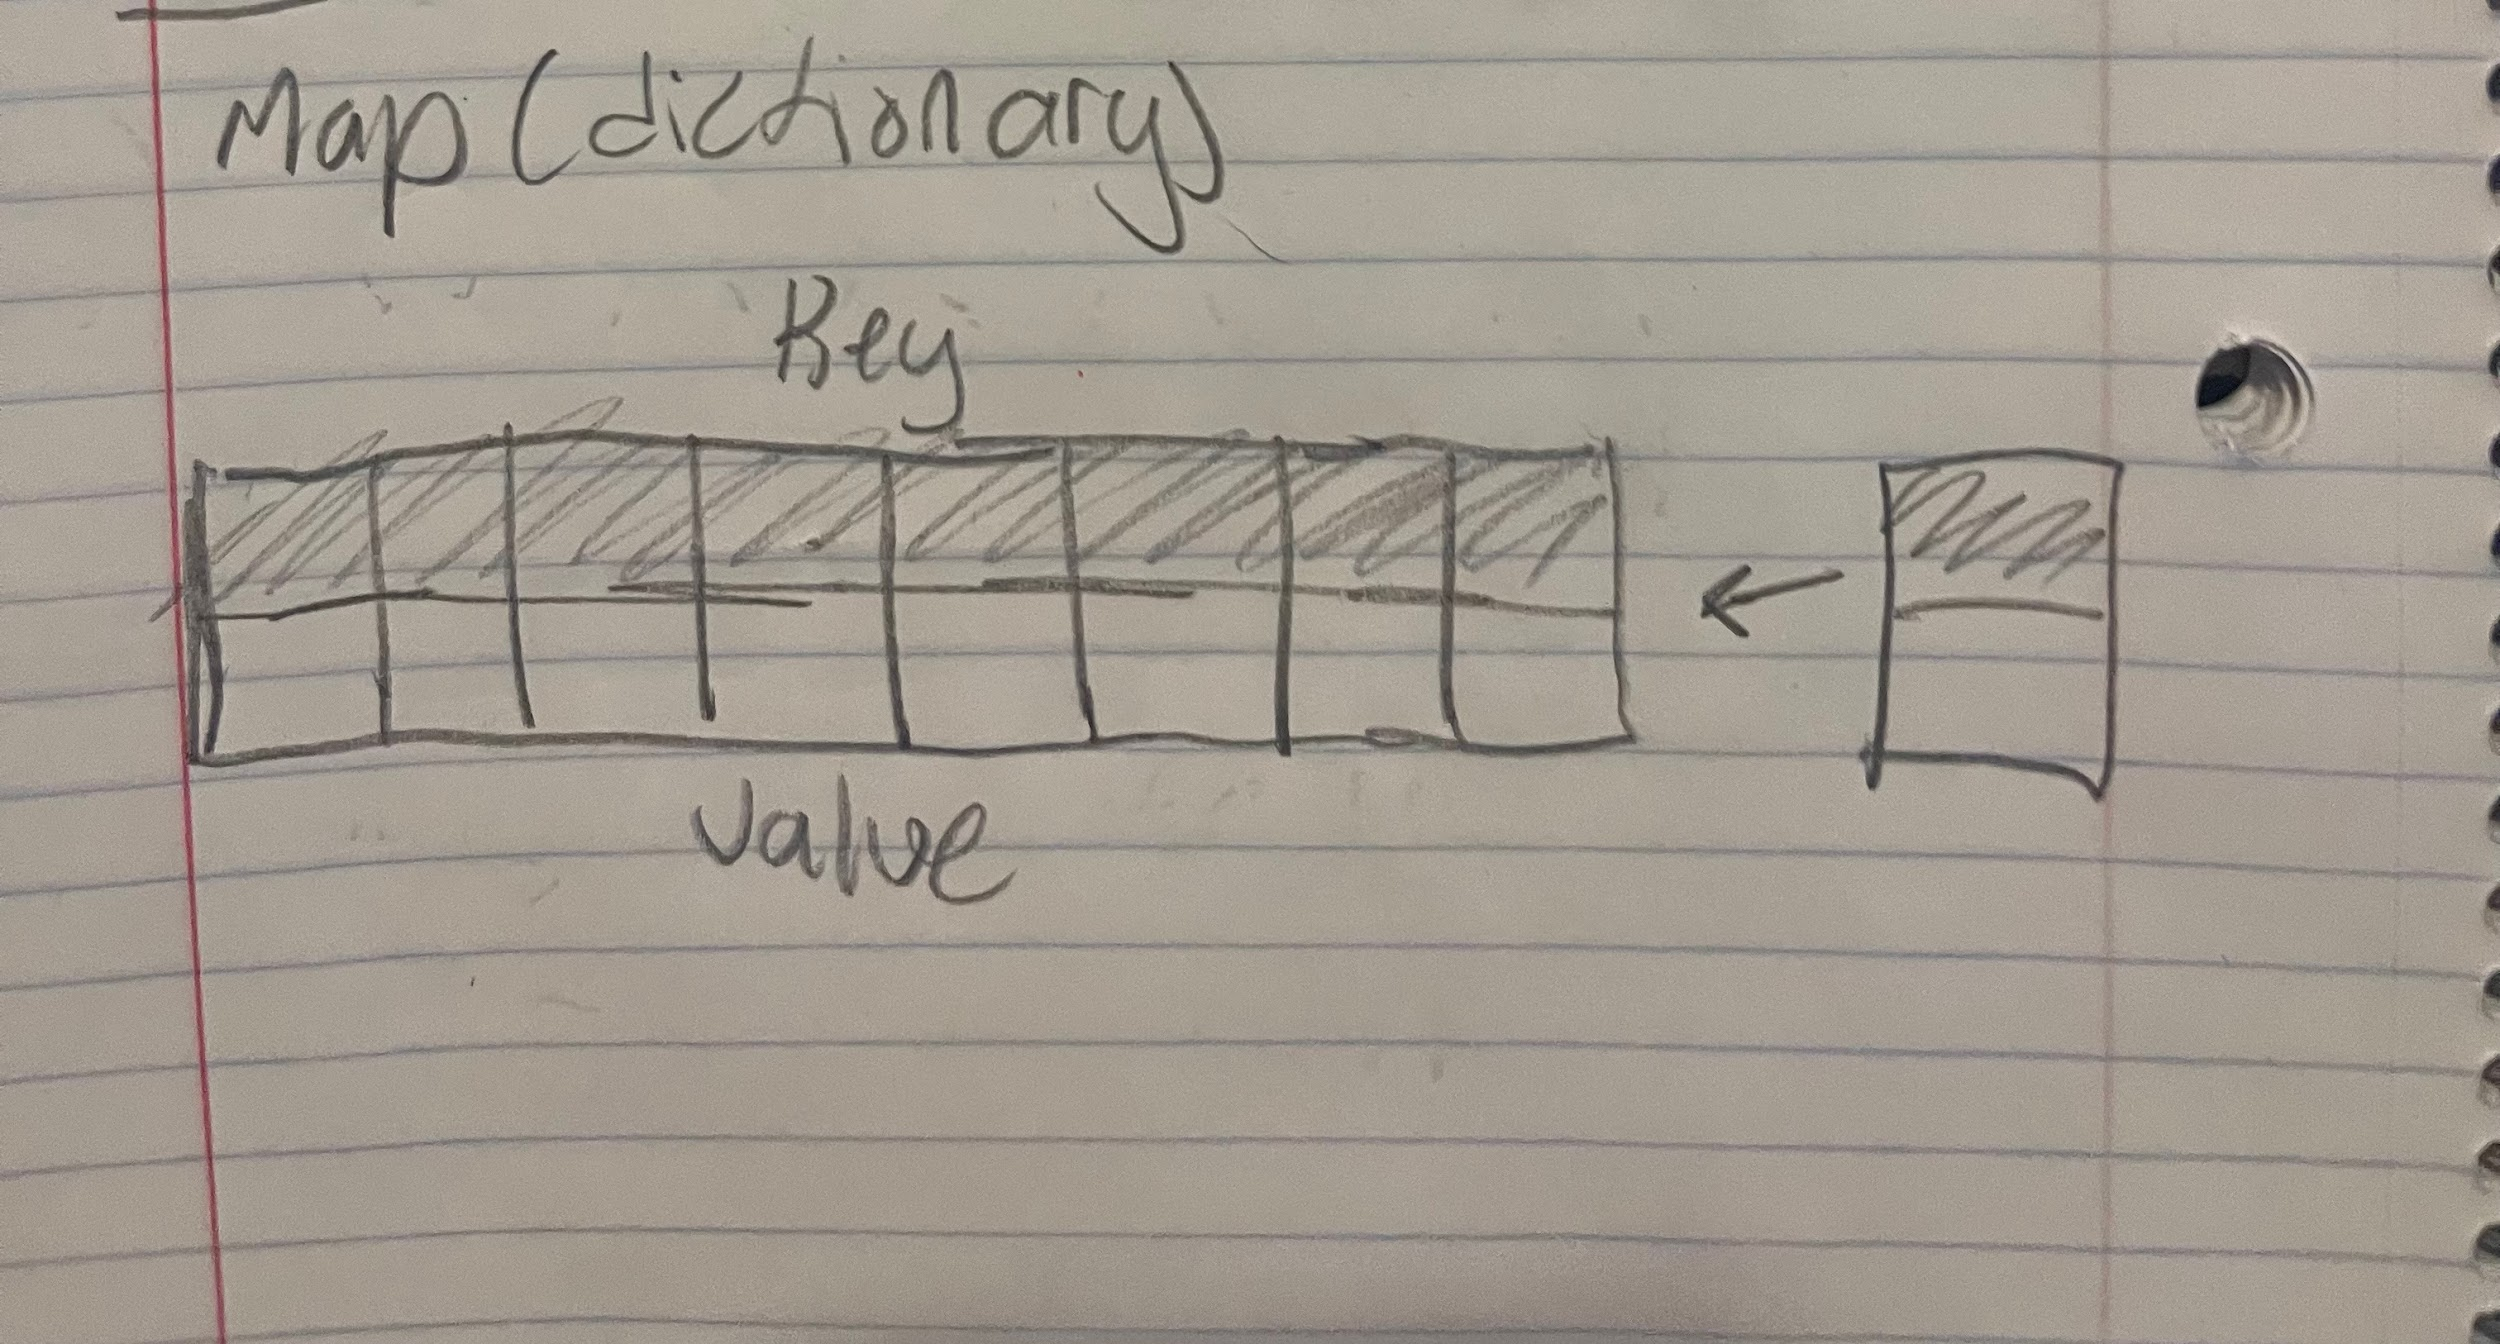 Map (dictionary)
Key
Value